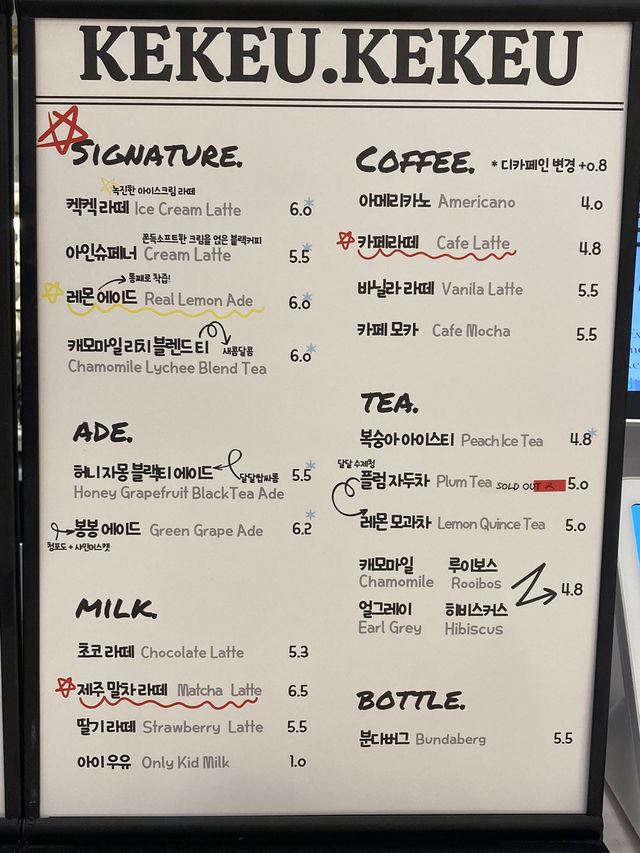 KEKEU.KEKEU
SIGNATURE.
녹진한 아이스크림 라떼
켁켁 라떼 Ice Cream Latte 6.0*
쫀득소프트한 크림을 얹은 블랙커피
아인슈페너 Cream Latte 5.5*
통째로 착즙!
레몬 에이드 Real Lemon Ade 6.0*
캐모마일 리치 블렌드 티 6.0*
새콤달콤
Chamomile Lychee Blend Tea
ADE.
허니 자몽 블랙티 에이드 5.5*
달달쌉싸름
Honey Grapefruit BlackTea Ade
봉봉 에이드 Green Grape Ade 6.2*
청포도 + 샤인머스캣
MILK.
초코 라떼 Chocolate Latte 5.3
제주 말차 라떼 Matcha Latte 6.5
딸기 라떼 Strawberry Latte 5.5
아이 우유 Only Kid Milk 1.0
COFFEE. * 디카페인 변경 +0.8
아메리카노 Americano 4.0
카페라떼 Cafe Latte 4.8
바닐라 라떼 Vanila Latte 5.5
카페 모카 Cafe Mocha 5.5
TEA.
복숭아 아이스티 Peach Ice Tea 4.8*
달달 수제청
플럼 자두차 Plum Tea SOLD OUT 5.0
레몬 모과차 Lemon Quince Tea 5.0
캐모마일 루이보스
Chamomile Rooibos
4.8
얼그레이 히비스커스
Earl Grey Hibiscus
BOTTLE.
분다버그 Bundaberg 5.5